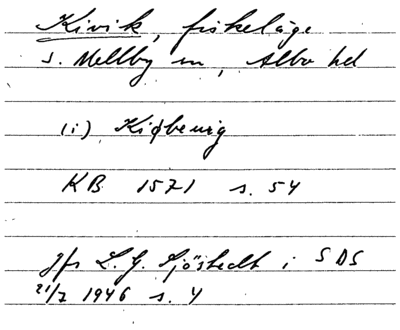 Kivik, fiskeläge
S. Mellby sn, Albo hd
(i) Kiøbenig
KB 1571 s. 54
Jfr L. G. Sjöstedt i SDS
21/7 1946 s. 4